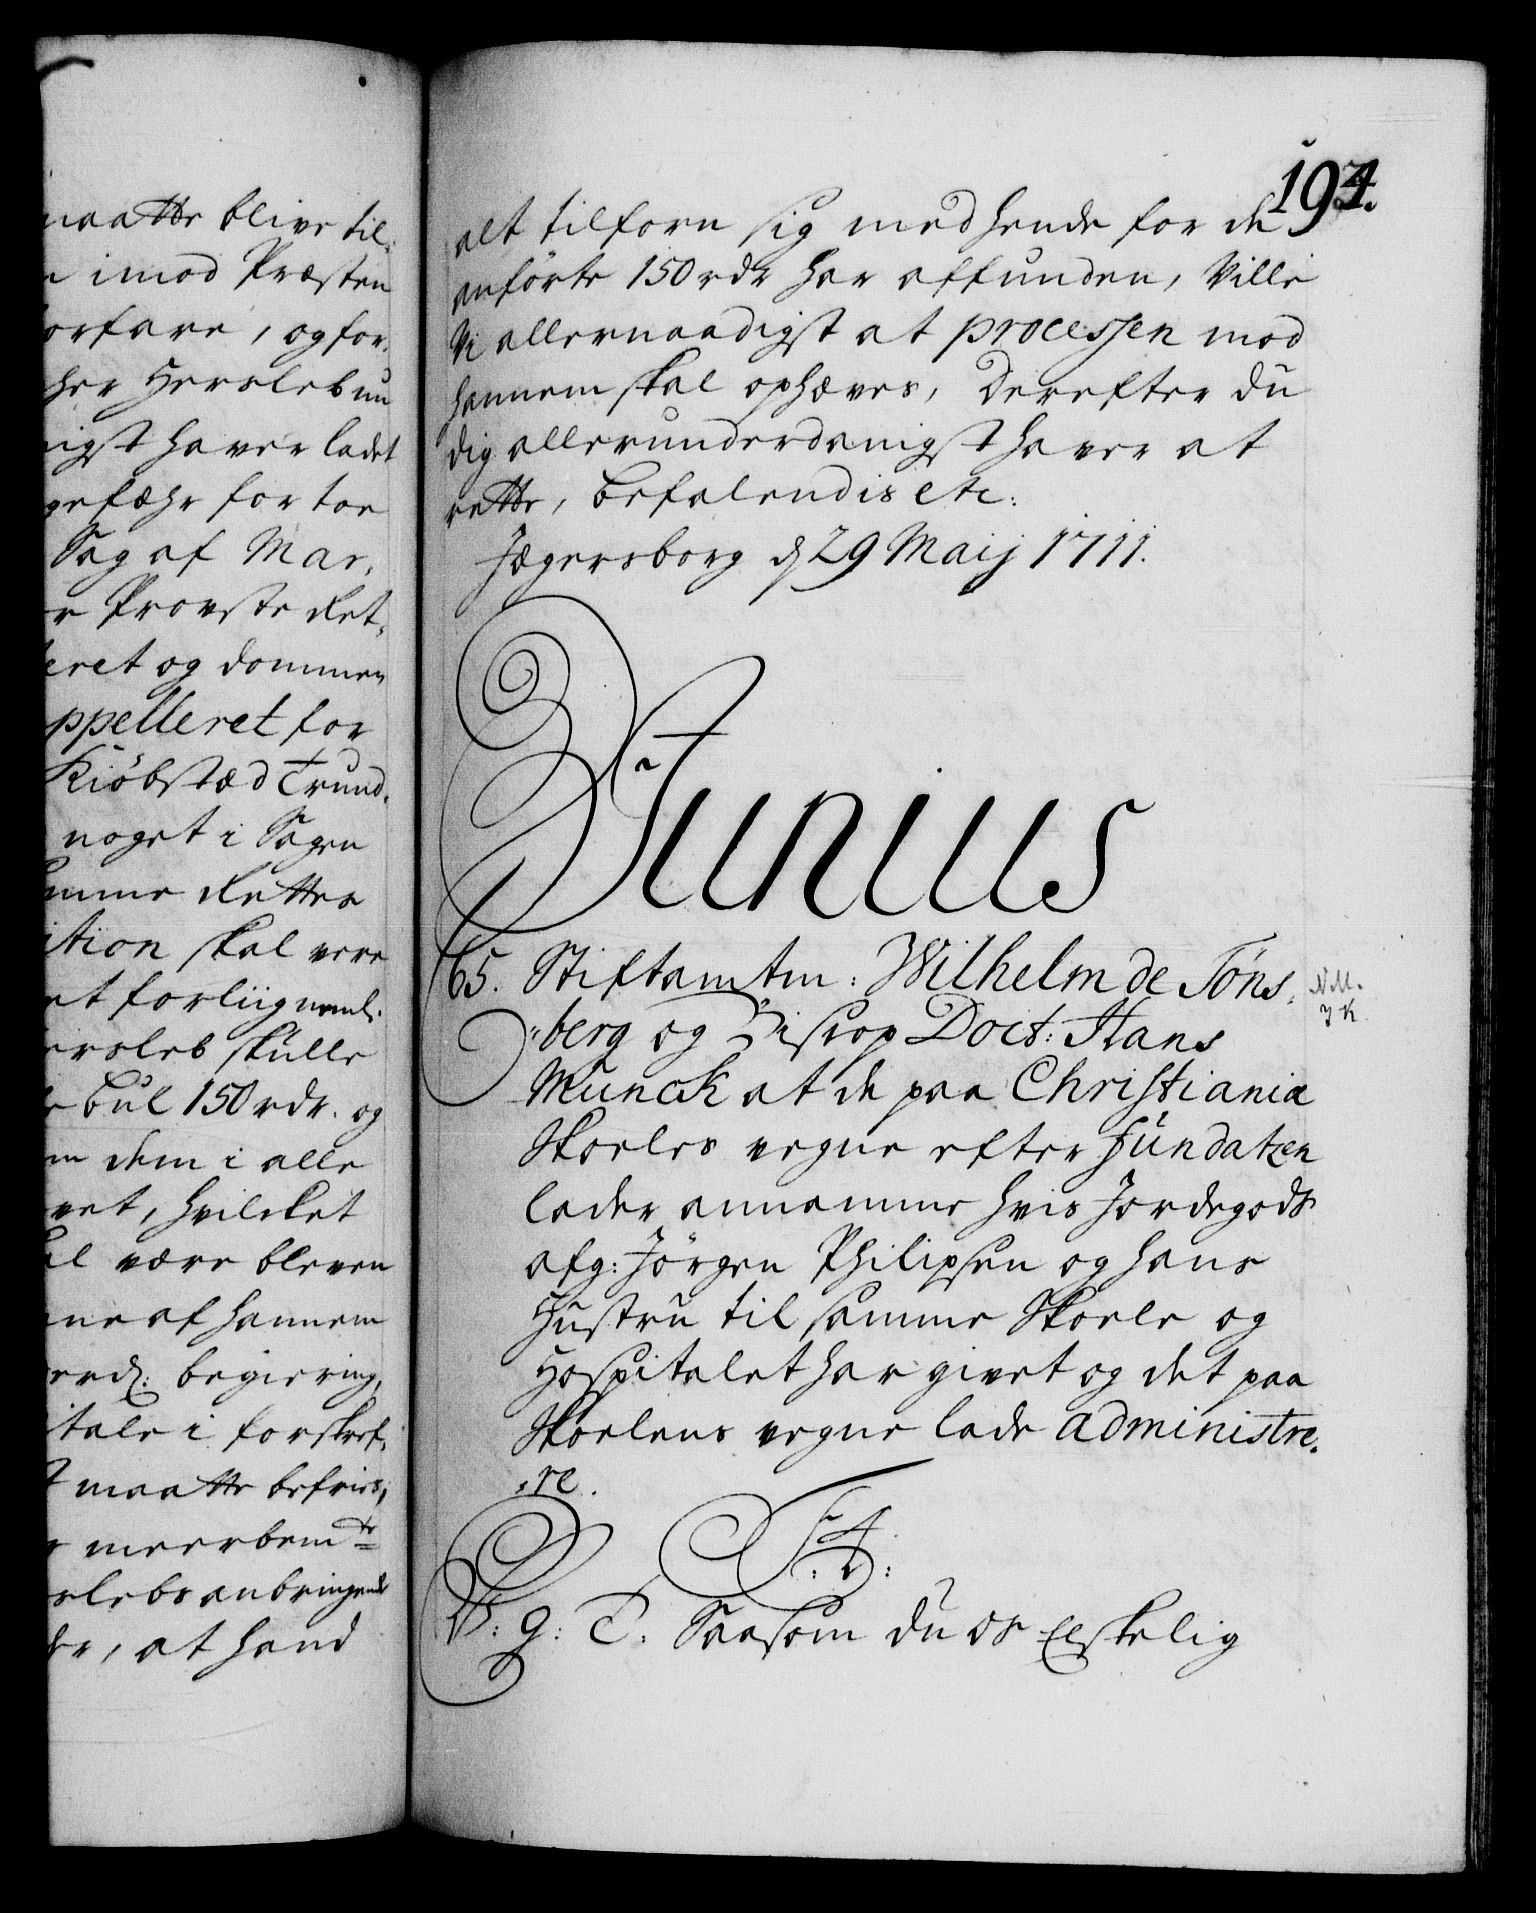 maatte blive til,
n imod Præsten
forfare, og for,
her Hersleb nu
nigst haver ladet
gefæhr for toe
Sag af Mar,
r Provste Ret,
teret og dommen
ppelleret for
Kiöbstæd Trund,
noget i Sagen
amme Retter
ition skal vere
et forliignend.
ersleb skulle
Bul 150 rdr. og
m dem i alle
vet, hvilcket
al være bleven
ne af hannem
erd: begiering,
tale i forskref,
maatte befries,
r meerbemte
slebs anbringende
hr, at hand
194.
alt tilforn sig med hende for de
anförte 150 rdr har affunden, Ville
Vi allernaadigst at processen mod
hannem skal ophæves, Derefter du
dig allerunderdanigst haver at
rette, Befalendis etc:
Jægersborg d 29 Maij 1711.
Junius
65. Stiftamtm: Wilhelm de Töns,
berg og Bisrop Doct: Hans
Munck at de paa Christiania
Skoeles vegne efter Fundatzen
lader annamme hvis Jordegods
afg: Jörgen Philipsen og hans
Hustru til samme Skoele og
Hospitalet har givet og det paa
Skoelens vegne lade administre,
,re.
F: 4:
V: G: T: Saasom du os Elskelig